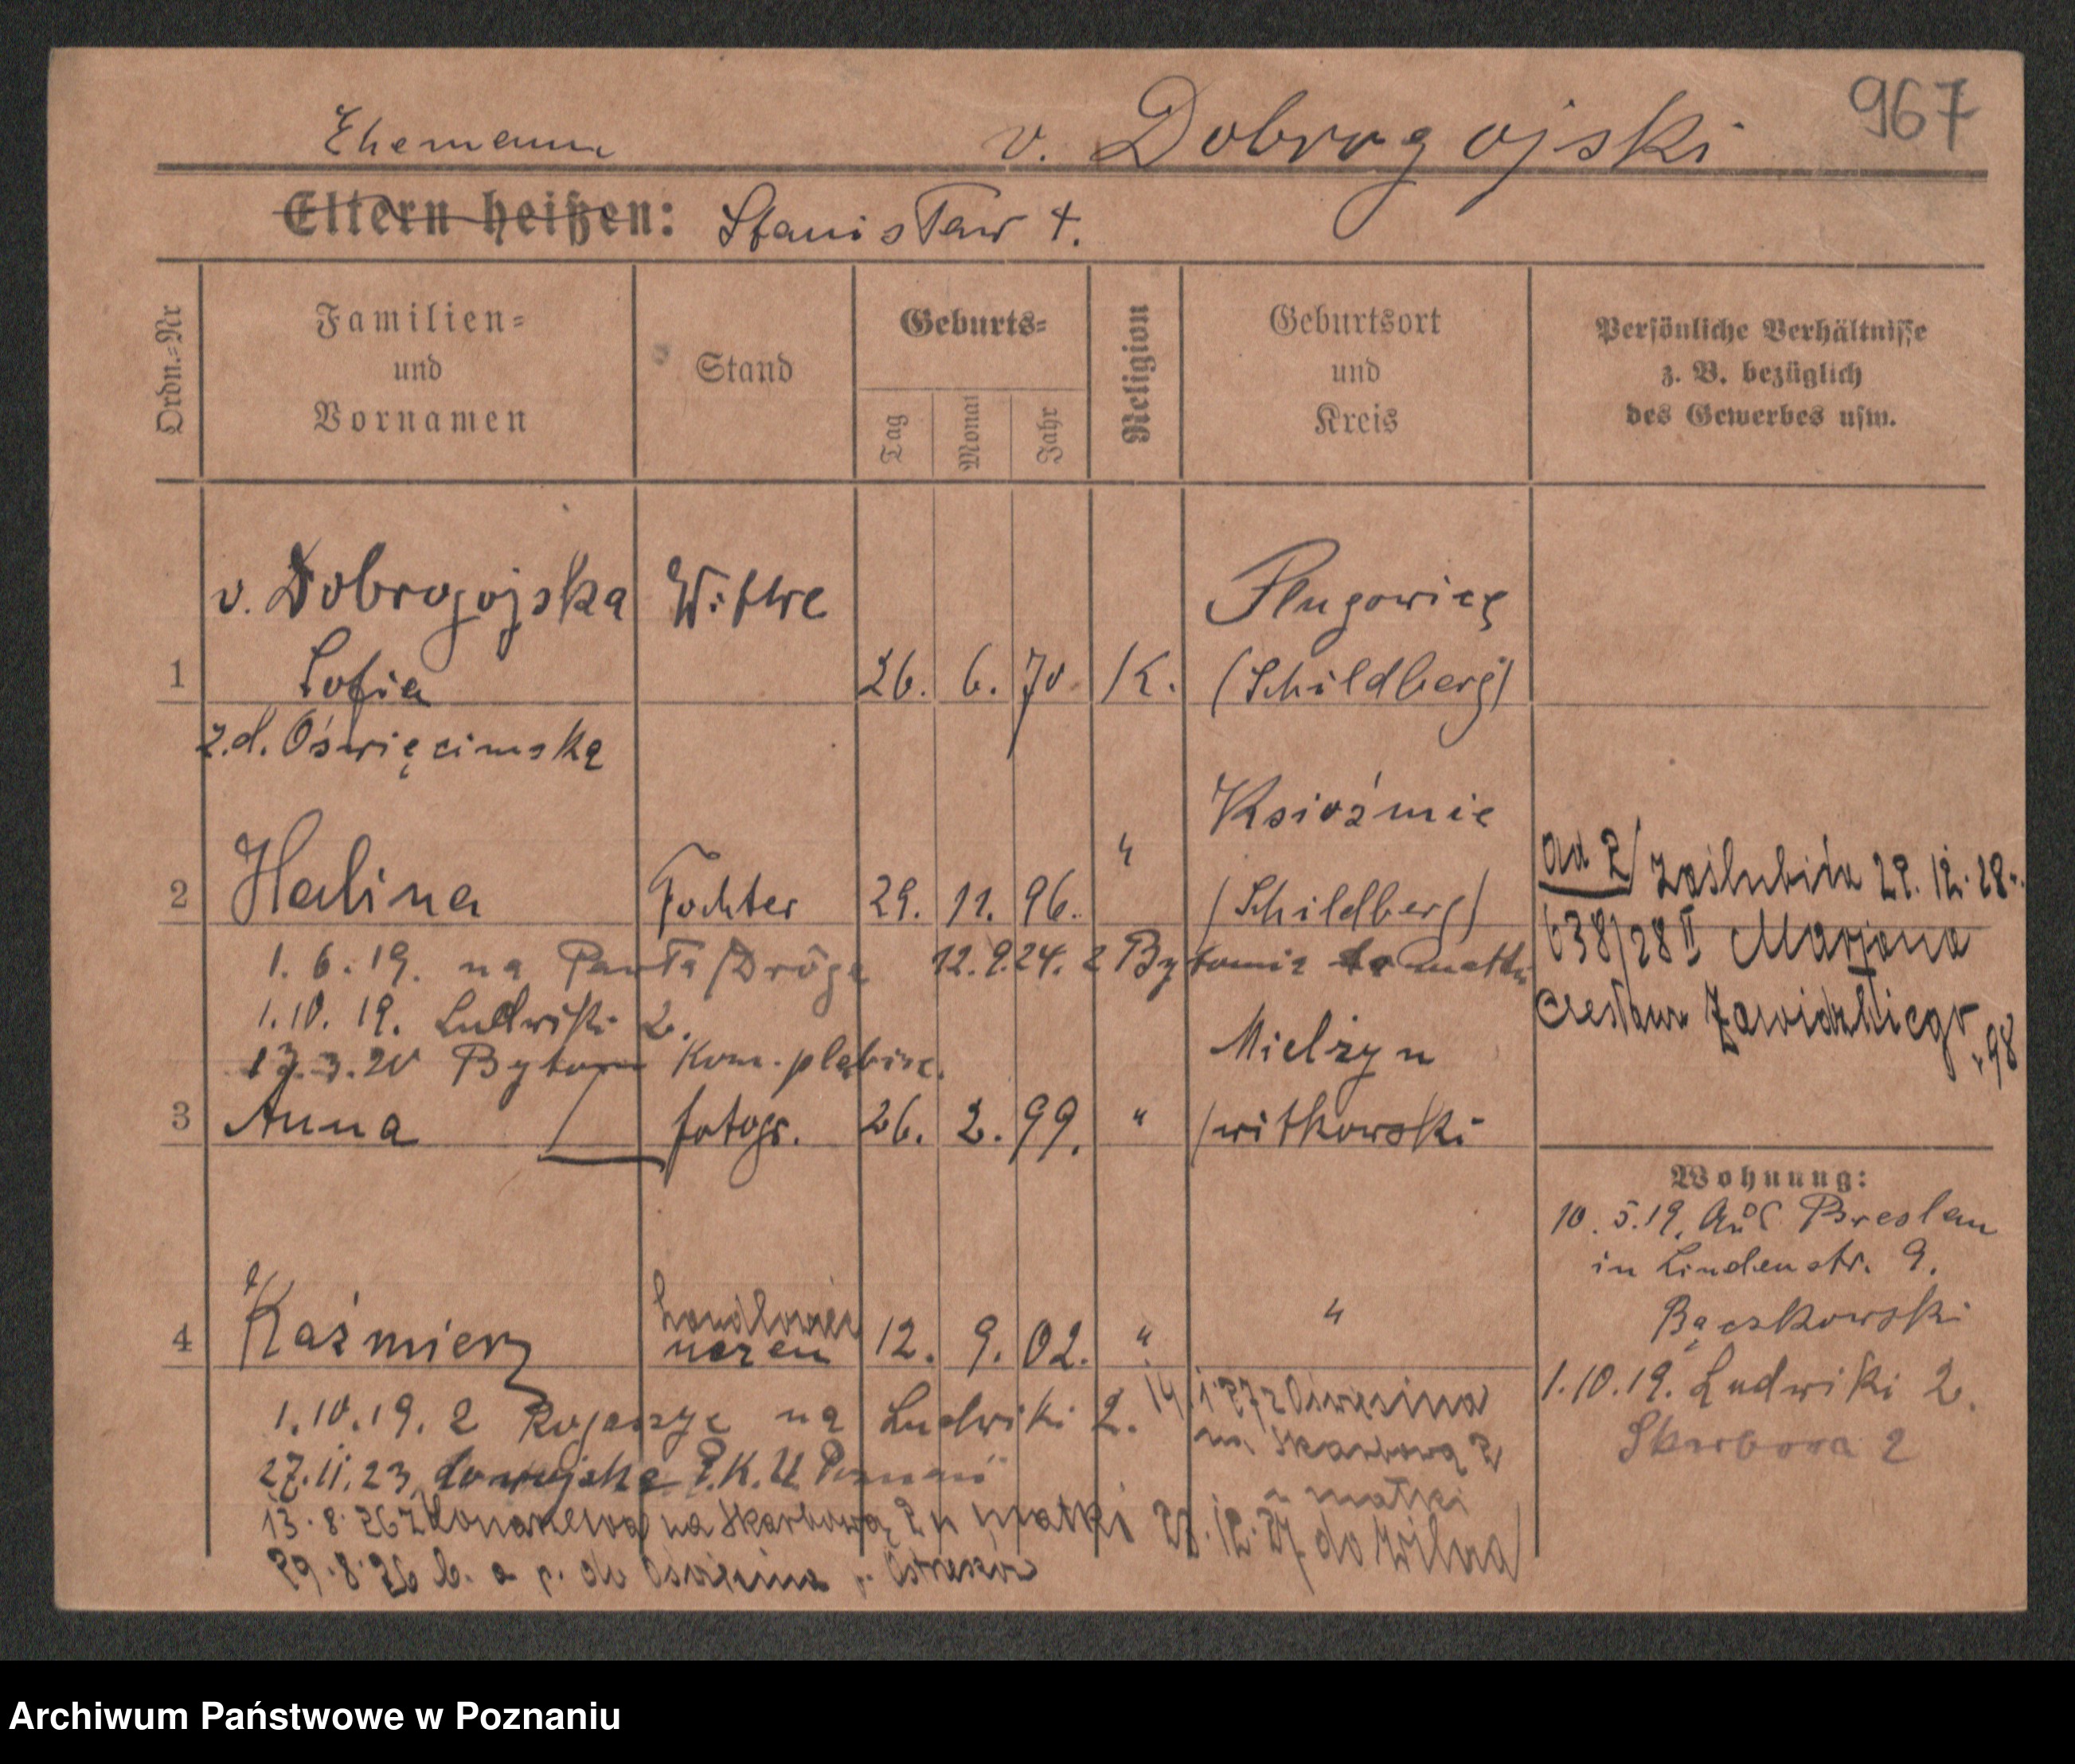 967
Ehemann v. Dobrogojski
Eltern heißen: Stanisław †.
Ordn.=Nr
Familien=
und
Vornamen
Stand
Geburts=
Tag
Monat
Jahr
Religion
Geburtsort
und
Kreis
Persönliche Verhältnisse
z. B. bezüglich
des Gewerbes usw.
v. Dobrogojska Witwe Plugowice
1 Sofia 26. 6. 70 K. (Schildberg)
z.d. Oświęcimska
Ksioźmie
2 Halina Tochter 29. 11. 96. " (Schildberg)
ad 2/ zaślubiła 29. 12. 28.
638/28 II Marjana
Czesława Zawidzkiego
98
1. 6. 19. na Pawła/Drôga 12.9.24. z Bytomia do matki
1. 10. 19. Ludwiki 2.
13.3.20 Bytom Kom. plebisc.
Mielżyn
3 Anna fotogr. 26. 2. 99. " (witkowski
Wohnung:
10. 5. 19. aus Breslau
in Lindenstr. 9.
Bączkowski
1.10.19. Ludwiki 2.
Skarbowa 2
handlowiec
4 Kaźmierz uczeń 12. 9. 02. " "
1.10.19. z na Ludwiki 2.
14.1.27 z Oświęcima
na Skarbową 2
u matki
27.11.23. do wojska P.K.U. Poznań
13.8.26 z na Skarbową 2 u matki 28.12.27. do Wilna
29.8.26 b. a p. do Oświęcima p. Ostrzeszów
Archiwum Państwowe w Poznaniu